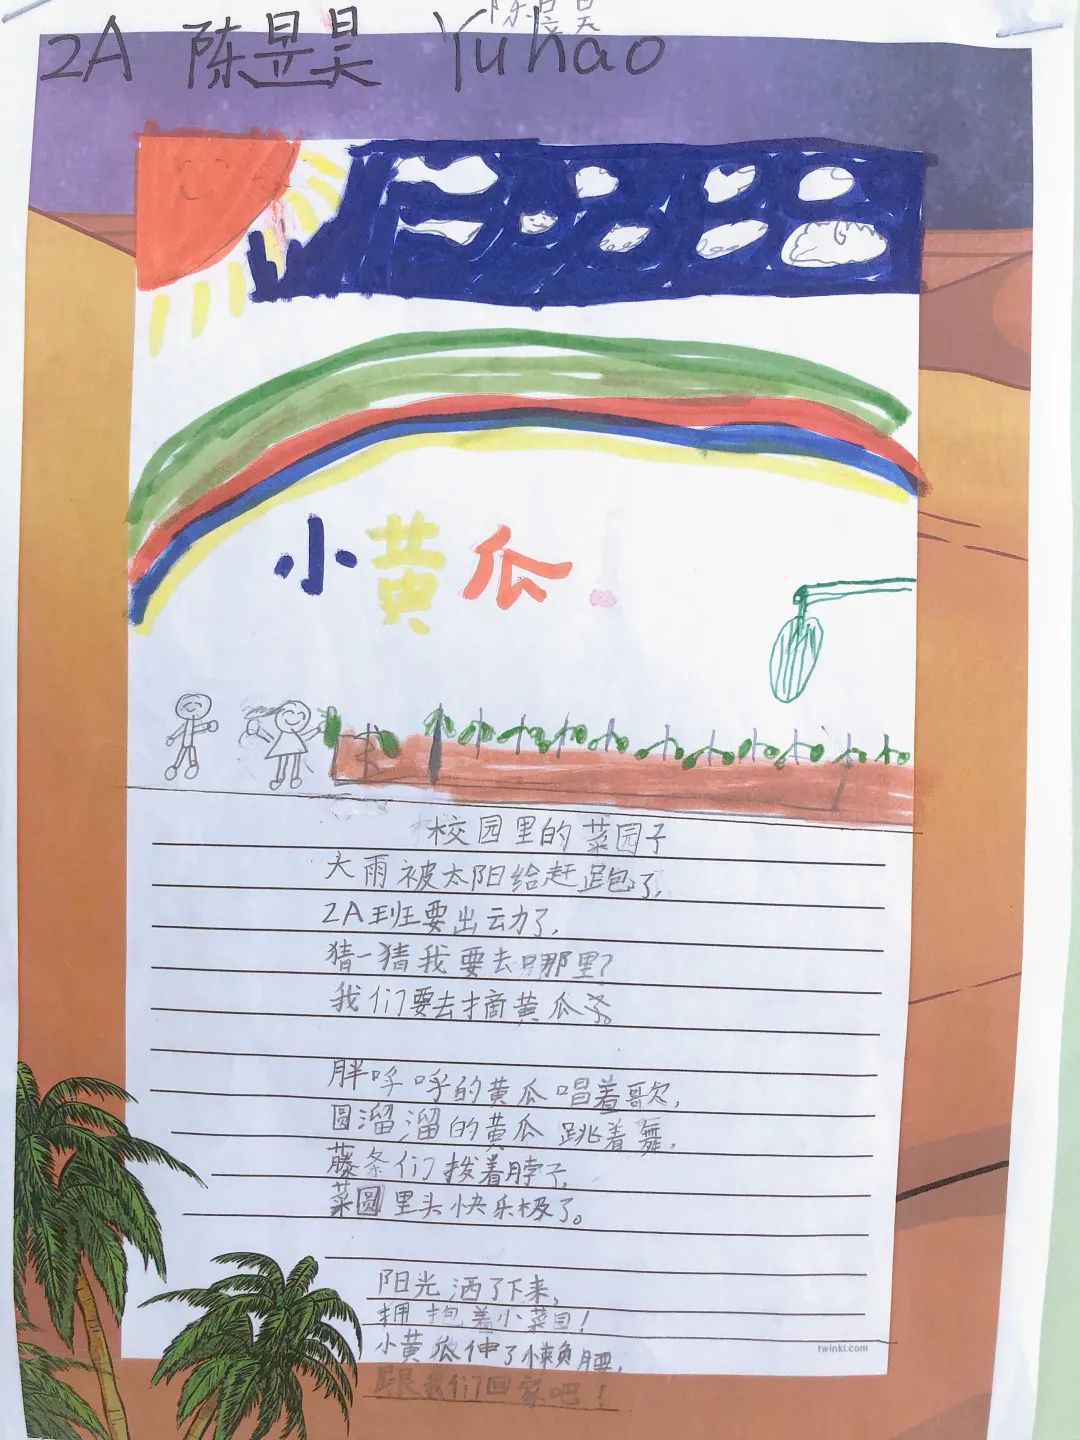 陈昱昊
2A 陈昱昊 Yuhao
小黄瓜
校园里的菜园子
大雨被太阳给赶跑了,
2A班要出动了,
猜一猜我要去哪里?
我们要去摘黄瓜条。
胖呼呼的黄瓜唱着歌,
圆溜溜的黄瓜跳着舞,
藤条们拨着脖子,
菜圆里头快乐极了。
阳光洒了下来,
拥抱着小菜园!
小黄瓜伸了懒腰,
跟我们回家吧!
twinkl.com